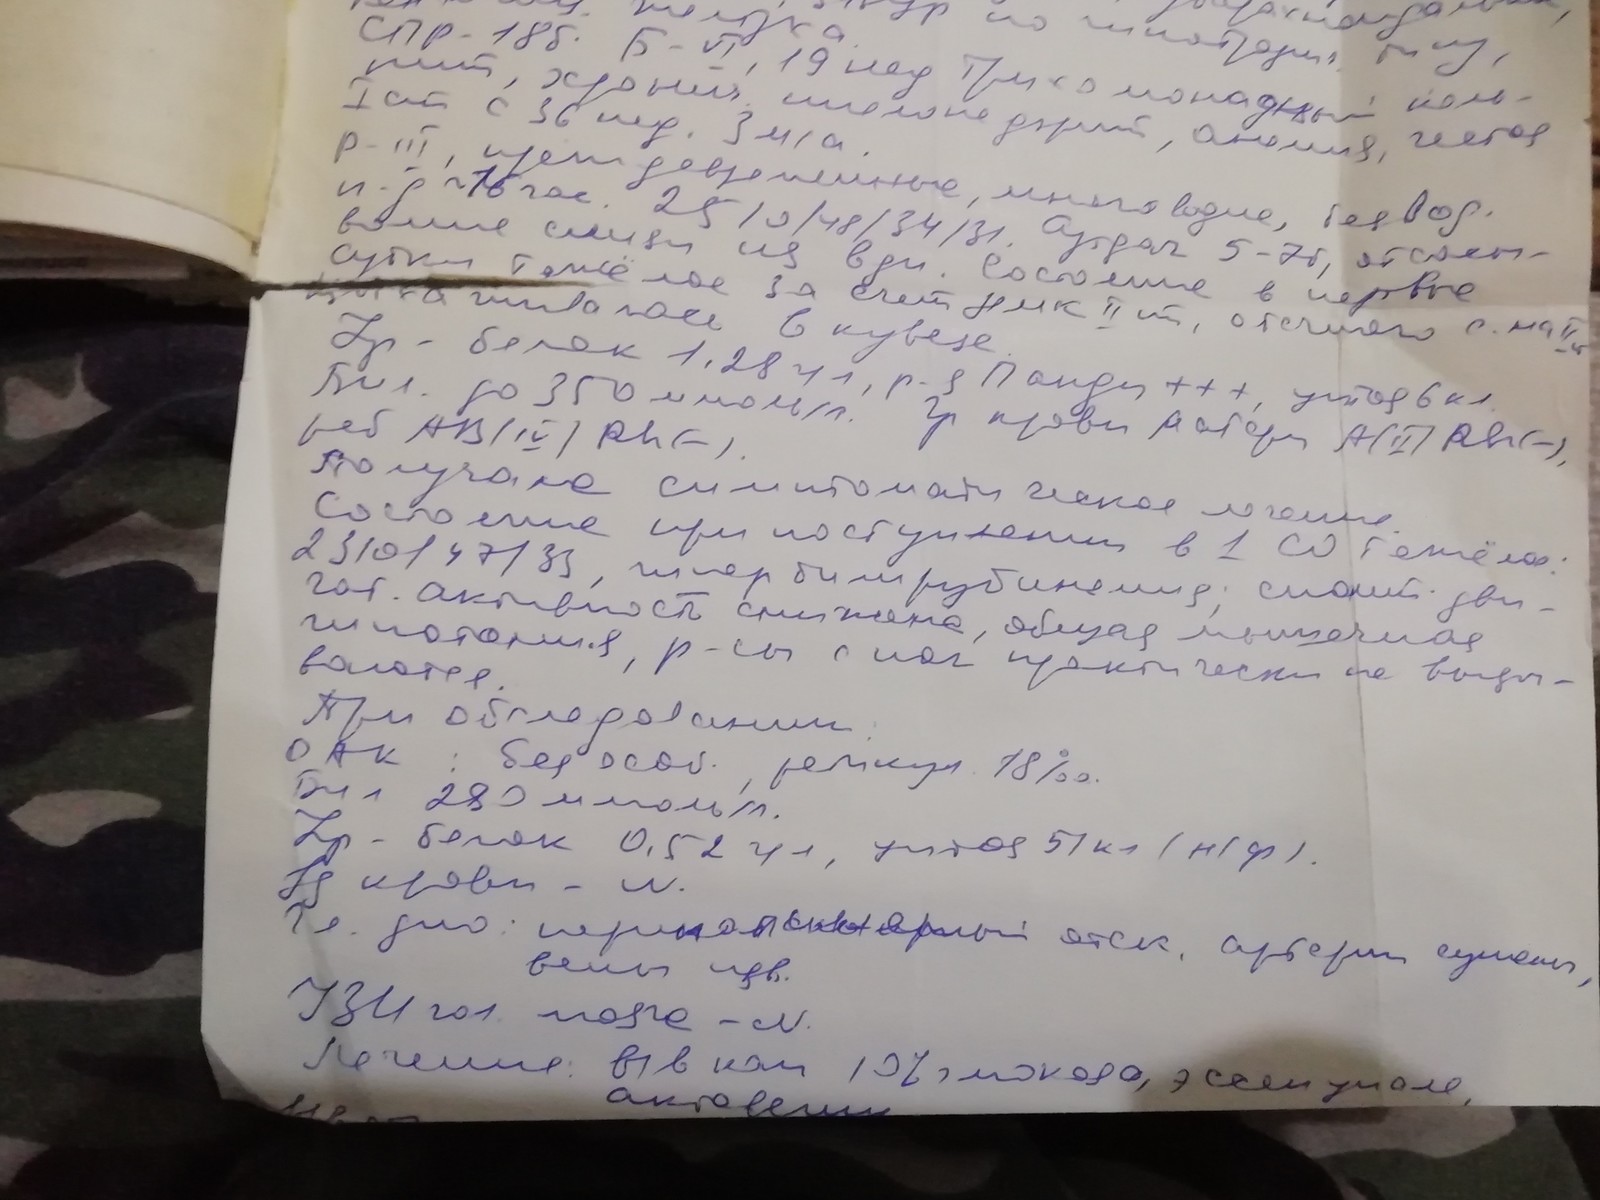 желудка. по гипотрофич. типу,
СПР-185. Б-VI, 19 нед трихомонадный коль-
пит, хронич. пиелонефрит, анемия, гестоз
I ст с 36 нед. ЗМ/а.
р-III, преждевременные, многоводие, безвод.
п-д 16 час. 2500/48/34/31. Апгар 5-7б, отсасы-
вание слизи из вдп. Состояние в первые
сутки тяжёлое за счет НМК II ст, отечного с-ма II ст
выхаживалась в кувезе.
Lp - белок 1,28 г/л, р-я Панди +++, цитоз 6 кл.
Бил. до 350 ммоль/л. Гр крови матери A(II) Rh(-),
реб AB(IV) Rh(-).
Получала симптоматическое лечение.
Состояние при поступлении в 1 СО тяжёлое:
2310/47/33, гипербилирубинемия; спонт. дви-
гат. активность снижена, общая мышечная
гипотония, р-сы с ног практически не вызы-
ваются.
При обследовании:
ОАК: без особ., ретикул. 18‰.
Бил 280 ммоль/л.
Lp - белок 0,52 г/л, цитоз 5/кл (н/ф).
крови - N.
Гл. дно: отек. артерии сужены,
вены изв.
УЗИ гол. мозга - N.
Лечение: в/в кап 10% глюкоза, эссенциале,
актовегин